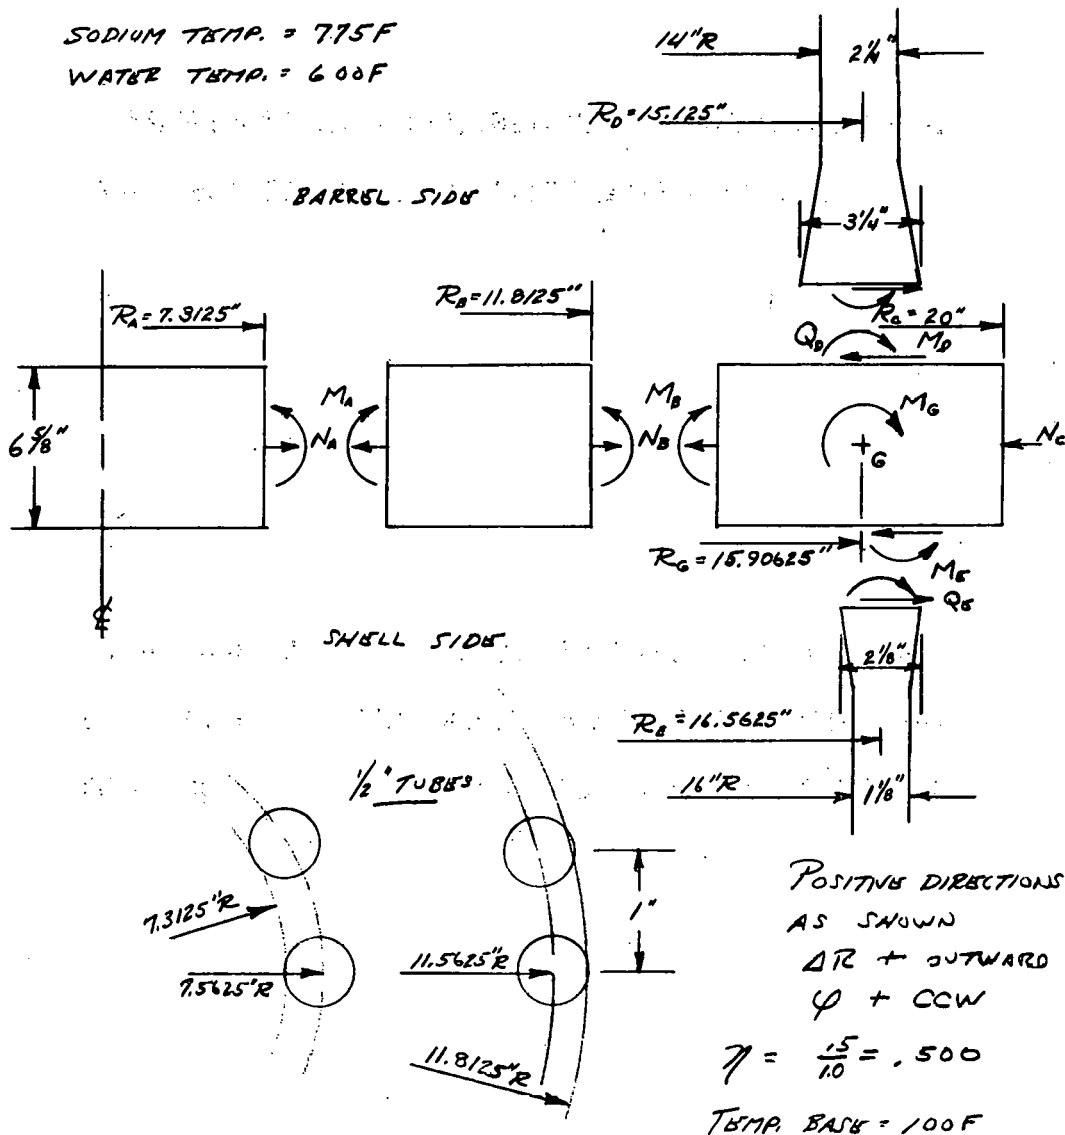 SODIUM TEMP. = 775F
WATER TEMP. = 600F
14"R
2¼"
R_D = 15.125"
BARREL SIDE
3¼"
R_A = 7.3125"
R_B = 11.8125"
R_C = 20"
Q_D
M_D
M_A
M_B
M_G
6⅝"
N_A
N_B
G
N_C
R_G = 15.90625"
M_E
Q_E
℄
SHELL SIDE
2⅛"
R_E = 16.5625"
½" TUBES
16"R
1⅛"
7.3125"R
1"
7.5625"R
11.5625"R
11.8125"R
POSITIVE DIRECTIONS
AS SHOWN
ΔR + OUTWARD
φ + CCW
η = .5/1.0 = .500
TEMP. BASE = 100F